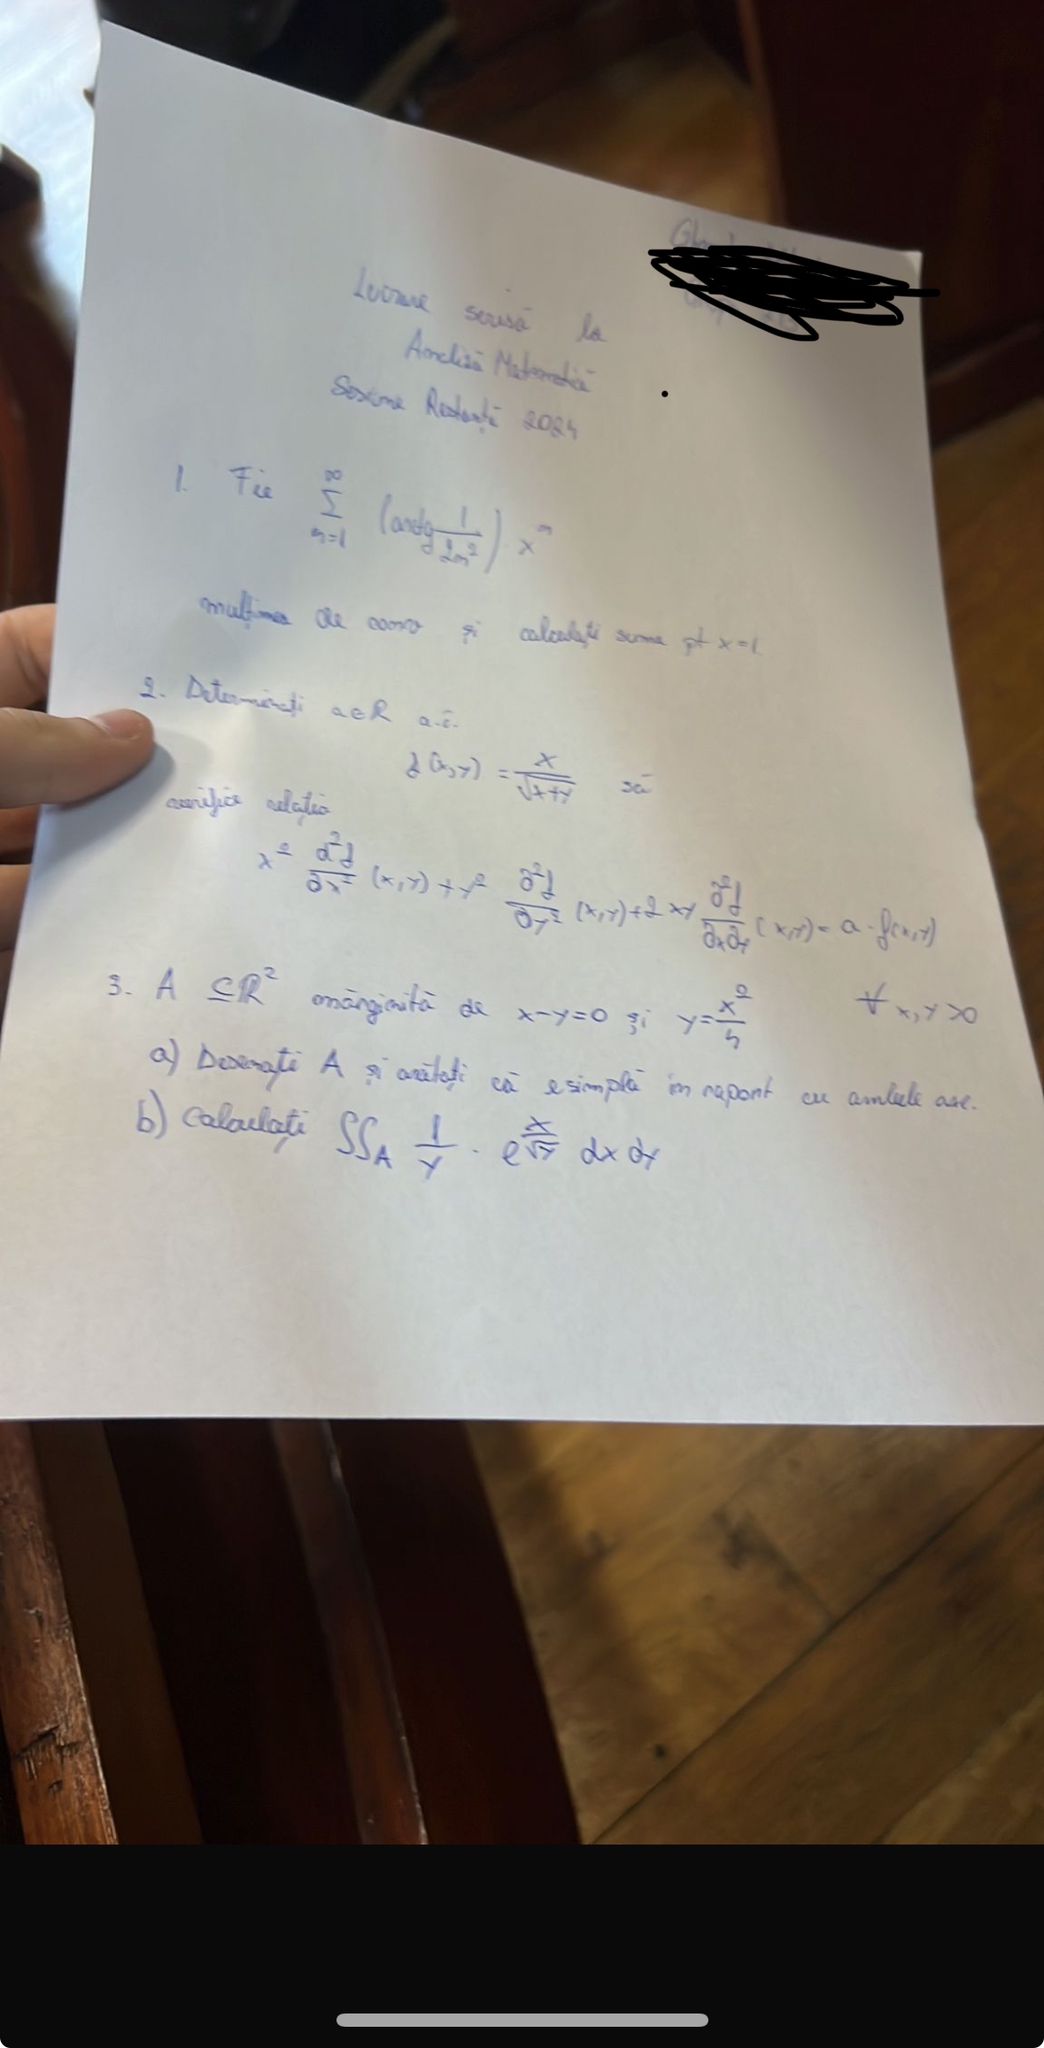 Lucrare scrisă la
Analiză Matematică
Sesiune Restanță 2024
1. Fie ∞ Σ n=1 (arctg 1/2n²) xⁿ
mulțimea de conv și calculați suma pt x=1
2. Determinați a∈R a.î.
f(x,y) = x/√x+y să
verifice relația
x² ∂²f/∂x² (x,y) + y² ∂²f/∂y² (x,y) + 2xy ∂²f/∂x∂y (x,y) = a · f(x,y)
∀ x,y>0
3. A ⊆ R² mărginită de x-y=0 și y = x²/4
a) Desenați A și arătați că e simplă în raport cu ambele axe.
b) Calculați ∫∫A 1/y · e^(x/√y) dx dy